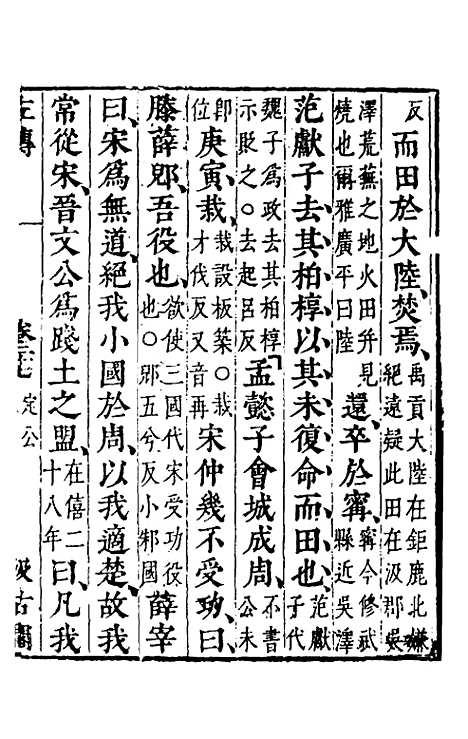 反而田於大陸、焚焉、禹貢大陸在鉅鹿北嫌絕遠疑此田在汲郡吳
澤荒蕪之地火田并見燒也爾雅廣平曰陸還、卒於甯、甯今修武縣近吳澤
范獻子去其柏椁、以其未復命而田也、范獻子代
魏子爲政去其柏椁示貶之○去起呂反孟懿子會城成周、不書公未
卽位庚寅、栽、栽設板築○栽才伐反又音再宋仲幾不受功、曰、
滕薛郳、吾役也、欲使三國代宋受功役也○郳五兮反小邾國薛宰
曰、宋爲無道、絕我小國於周、以我適楚、故我
常從宋、晉文公爲踐土之盟、在僖二十八年曰、凡我
左傳 一 定公 汲古閣